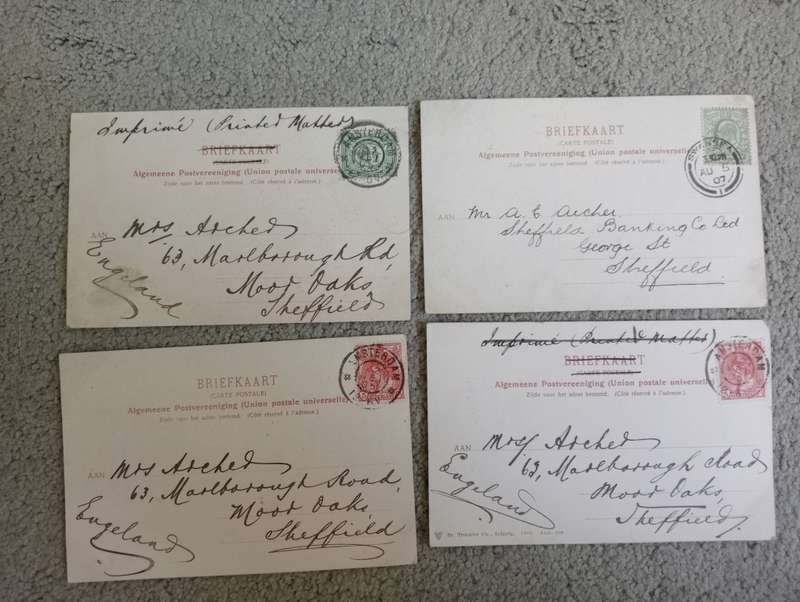 Imprimé (Printed Matter)
BRIEFKAART
(CARTE POSTALE)
Algemeene Postvereeniging (Union postale universelle)
Zijde voor het adres bestemd. (Côté réservé à l'adresse.)
AMSTERDAM
AAN
Mrs Archer
63, Marlborough Rd
Moor Oaks,
Sheffield
Engeland
BRIEFKAART
(CARTE POSTALE)
Algemeene Postvereeniging (Union postale universelle)
Zijde voor het adres bestemd. (Côté réservé à l'adresse.)
SWANSEA
AU 5
07
1
AAN
Mr A. E Archer.
Sheffield Banking Co Ltd
George St
Sheffield.
BRIEFKAART
(CARTE POSTALE)
Algemeene Postvereeniging (Union postale universelle)
Zijde voor het adres bestemd. (Côté réservé à l'adresse.)
AMSTERDAM
AAN
Mrs Archer
63, Marlborough Road,
Moor Oaks,
Sheffield
Engeland
Imprimé (Printed Matter)
BRIEFKAART
(CARTE POSTALE)
Algemeene Postvereeniging (Union postale universelle)
Zijde voor het adres bestemd. (Côté réservé à l'adresse.)
AMSTERDAM
AAN
Mrs Archer
63, Marlborough Road
Moor Oaks,
Sheffield.
Engeland
Dr. Trenkler Co., Leipzig.